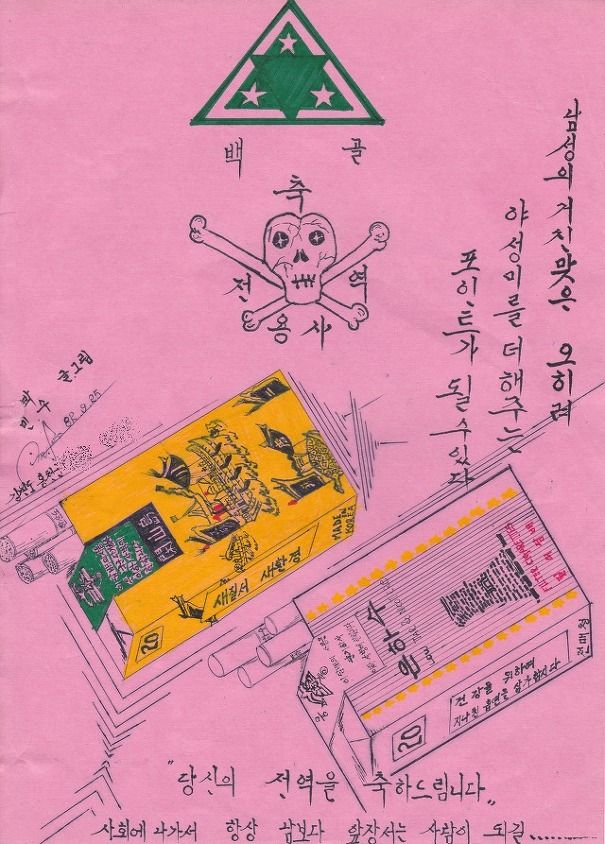 백 골
축
전 역
용 사
남성의 거친 맛은 오히려
야성미를 더해주는
포인트가 될 수 있다
글.그림
82.9.25
MADE IN KOREA
새질서 새환경
20
은하수
FILTER CIGARETTES
전매청
건강을 위하여
지나친 흡연을 삼가합시다
20
"당신의 전역을 축하드립니다"
사회에 나가서 항상 남보다 앞장서는 사람이 되길